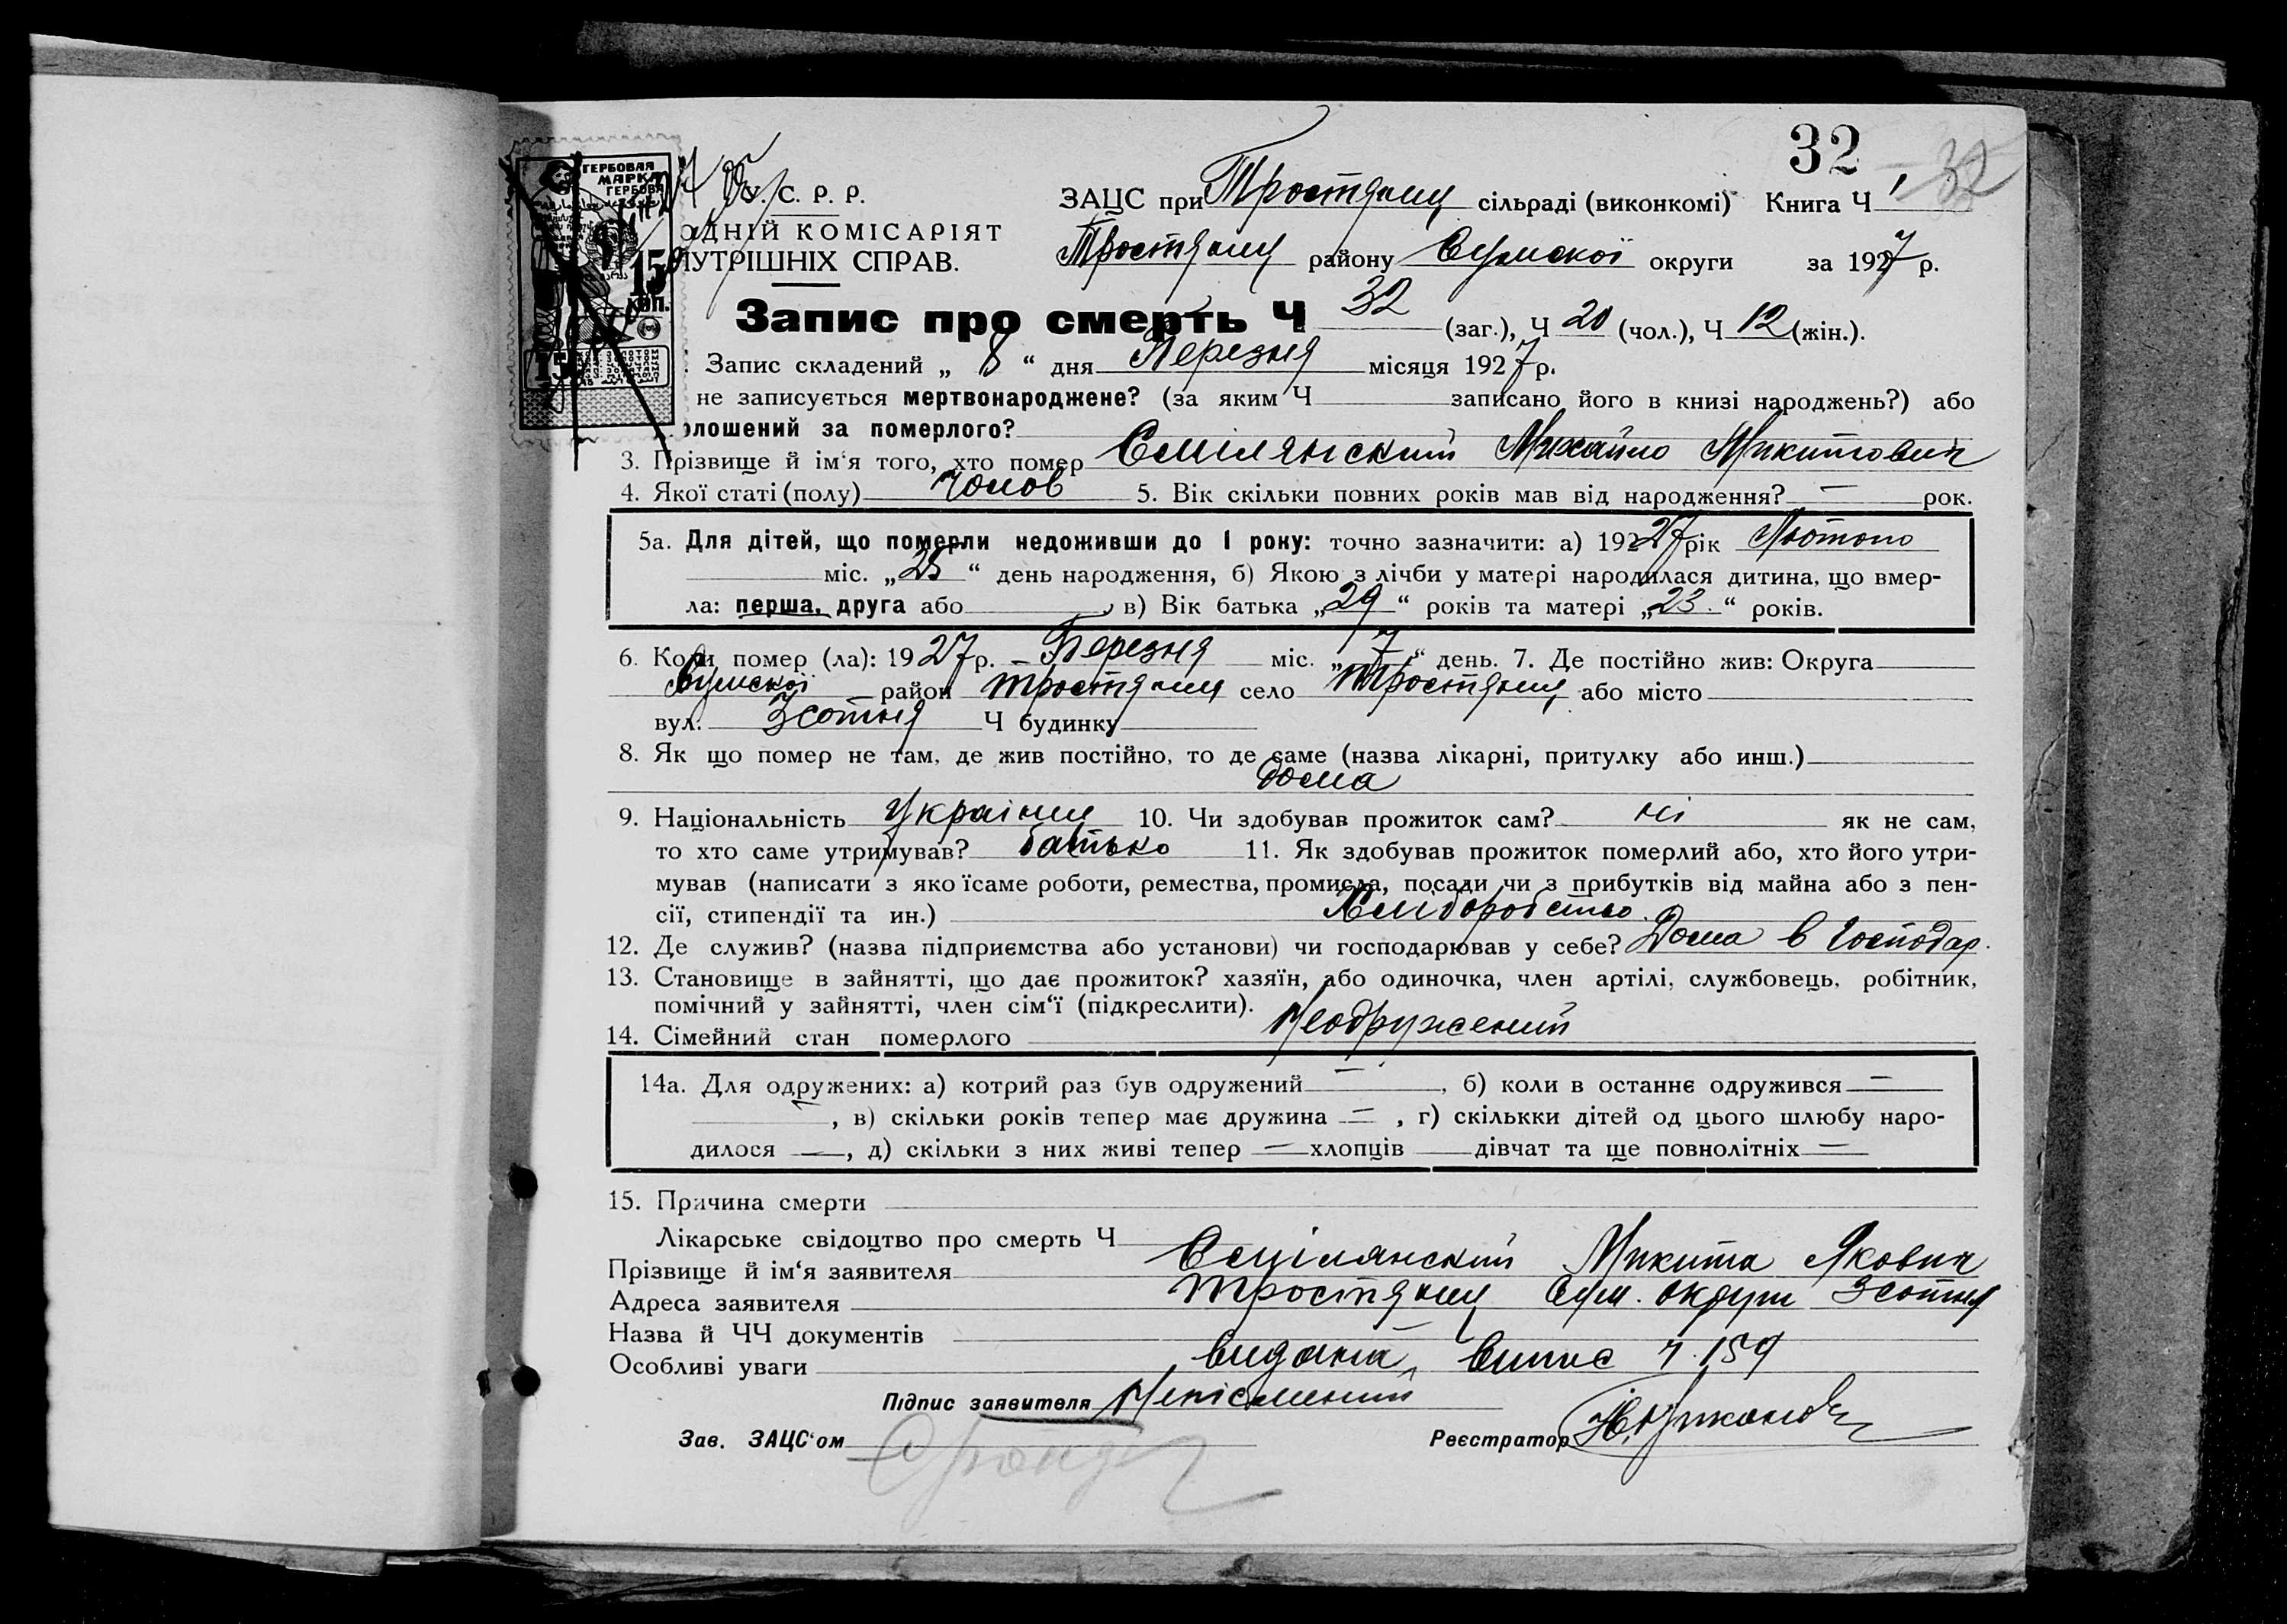 32
32
ГЕРБОВАЯ
МАРКА
ГЕРБОВА
15
КОП.
15
У. С. Р. Р.
ОДНІЙ КОМІСАРІЯТ
НУТРІШНІХ СПРАВ.
ЗАЦС при Тростянец сільраді (виконкомі) Книга Ч 1
Тростянец району Сумскої округи за 1927 р.
Запис про смерть Ч 32 (заг.), Ч 20 (чол.), Ч 12 (жін.).
Запис складений „ 8 “ дня Березня місяця 1927 р.
не записується мертвонароджене? (за яким Ч записано його в книзі народжень?) або
олошений за померлого?
3. Прізвище й ім‘я того, хто помер Смілянский Михайло Микитович
4. Якої статі (полу) чолов 5. Вік скільки повних років мав від народження? — рок.
5а. Для дітей, що померли недоживши до 1 року: точно зазначити: а) 1927 рік Лютого
міс. „ 25 “ день народження, б) Якою з лічби у матері народилася дитина, що вмер-
ла: перша, друга або , в) Вік батька „ 29 “ років та матері „ 23 “ років.
6. Коли помер (ла): 1927 р. Березня міс. „ 7 “ день. 7. Де постійно жив: Округа
Сумскої район Тростянец село Тростянец або місто
вул. 3 сотня Ч будинку
8. Як що помер не там, де жив постійно, то де саме (назва лікарні, притулку або инш.)
дома
9. Національність Українец 10. Чи здобував прожиток сам? ні як не сам,
то хто саме утримував? батько 11. Як здобував прожиток померлий або, хто його утри-
мував (написати з якоїсаме роботи, ремества, промисла, посади чи з прибутків від майна або з пен-
сії, стипендії та ин.) Хліборобство
12. Де служив? (назва підприємства або установи) чи господарював у себе? Дома в Господар.
13. Становище в зайнятті, що дає прожиток? хазяїн, або одиночка, член артілі, службовець, робітник,
помічний у зайнятті, член сім‘ї (підкреслити).
14. Сімейний стан померлого Неодружений
14а. Для одружених: а) котрий раз був одружений — , б) коли в останнє одружився —
— , в) скільки років тепер має дружина — , г) скількки дітей од цього шлюбу наро-
дилося — , д) скільки з них живі тепер — хлопців — дівчат та ще повнолітніх —
15. Причина смерти
Лікарське свідоцтво про смерть Ч
Прізвище й ім‘я заявителя Смілянский Микита Якович
Адреса заявителя Тростянец Сум. округи 3 сотня
Назва й ЧЧ документів
Особливі уваги видана випис ч. 159
Підпис заявителя Неписменний
Зав. ЗАЦС‘ом
Реєстратор